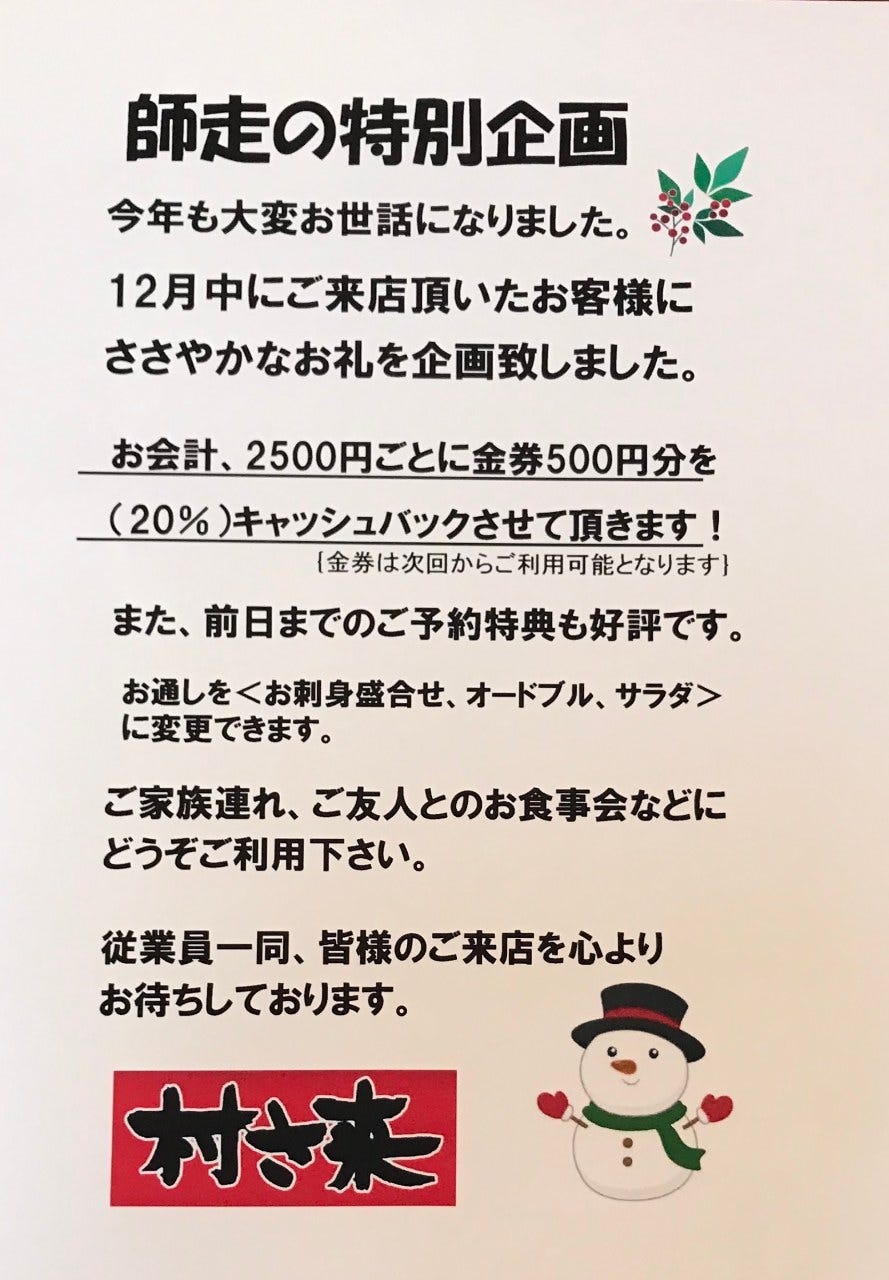 師走の特別企画
今年も大変お世話になりました。
12月中にご来店頂いたお客様に
ささやかなお礼を企画致しました。
お会計、2500円ごとに金券500円分を
（20％）キャッシュバックさせて頂きます！
{金券は次回からご利用可能となります}
また、前日までのご予約特典も好評です。
お通しを＜お刺身盛合せ、オードブル、サラダ＞
に変更できます。
ご家族連れ、ご友人とのお食事会などに
どうぞご利用下さい。
従業員一同、皆様のご来店を心より
お待ちしております。
村さ来